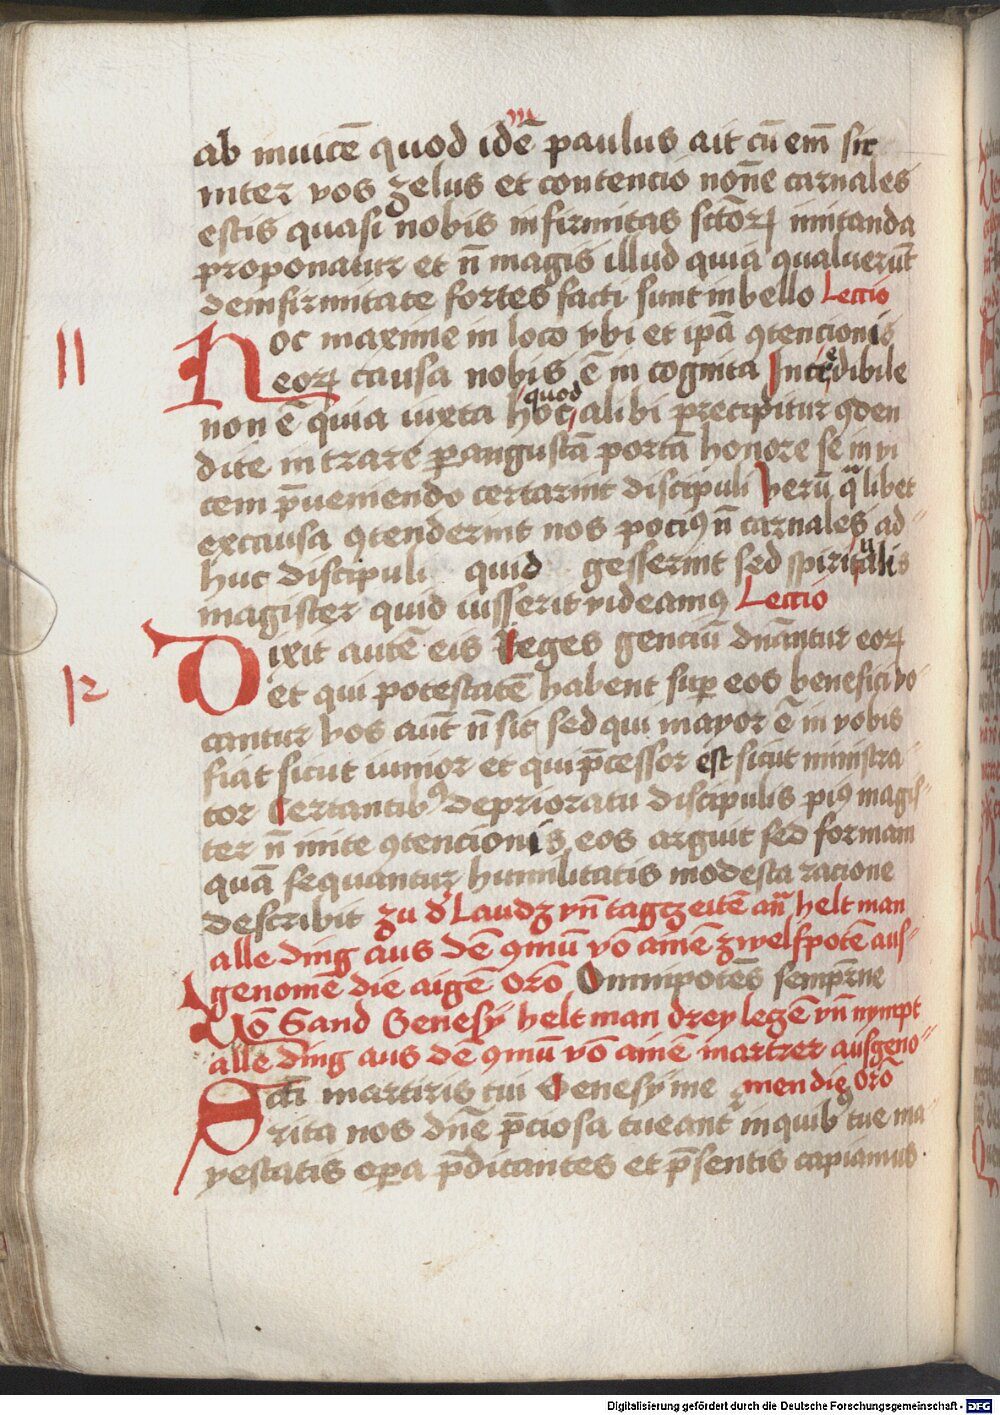 ab inuicē quod idē paulus ait cū em̄ sit
inter vos zelus et contencio non̄e carnales
estis quasi nobis infirmitas sctōrꝝ imitanda
proponatur et n̄ magis illud quia ꝯualuerūt
deinfirmitate fortes facti sunt in bello Lectio
Hoc maxime in loco vbi et ip̄a ꝯtencionis
eorꝝ causa nobis ē in cognita Incredibile
non ē quia iuxta hoc quod alibi precipitur ꝯten
dite intrare ꝑangustā portā honore se in vi
cem p̄ueniendo certarint discipuli Verū qͣlibet
excausa ꝯtenderint nos pociꝰ n̄ carnales ad
huc discipuli quid gesserint sed spiritualis
magister quid iusserit videamꝰ Lectio
Dixit autē eis Reges genciū dn̄antur eorꝝ
et qui potestatē habent suꝑ eos benefici vo
cantur vos aut̄ n̄ sic sed qui mayor ē in vobis
fiat sicut iunior et qui p̄cessor est sicut ministra
tor Certantibꝰ deprioratu discipulis piꝰ magis
ter n̄ imite ꝯtencionis eos arguit sed formam
quā sequantur humilitatis modesta racione
describit zu dʼ Laudz vn̄ tagczeitē an̄ helt man
alle ding aus dē ꝯmū vō ainē zwelfpotē aus
genomē die aigē Orō Omnipotēs semp̄rne
Vō Sand Genesy helt man drey leczē vn̄ nympt
alle ding aus dē ꝯmū vō ainē martrer ausgeno
men die Orō
Scti martiris tui Genesy me
rita nos dn̄e p̄ciosa tueant inquibꝰ tue ma
yestatis oꝑa p̄ditantes et p̄sentis capiamus
11
12
Digitalisierung gefördert durch die Deutsche Forschungsgemeinschaft - DFG